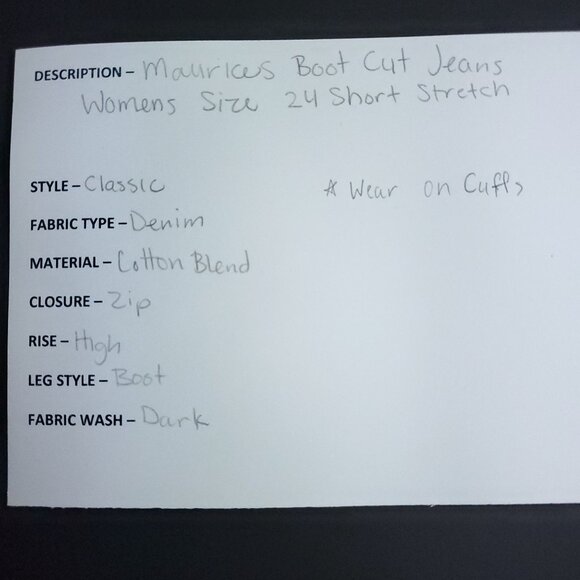 DESCRIPTION – Maurices Boot Cut Jeans
Womens Size 24 Short Stretch
STYLE – Classic
* Wear on Cuffs
FABRIC TYPE – Denim
MATERIAL – Cotton Blend
CLOSURE – Zip
RISE – High
LEG STYLE – Boot
FABRIC WASH – Dark